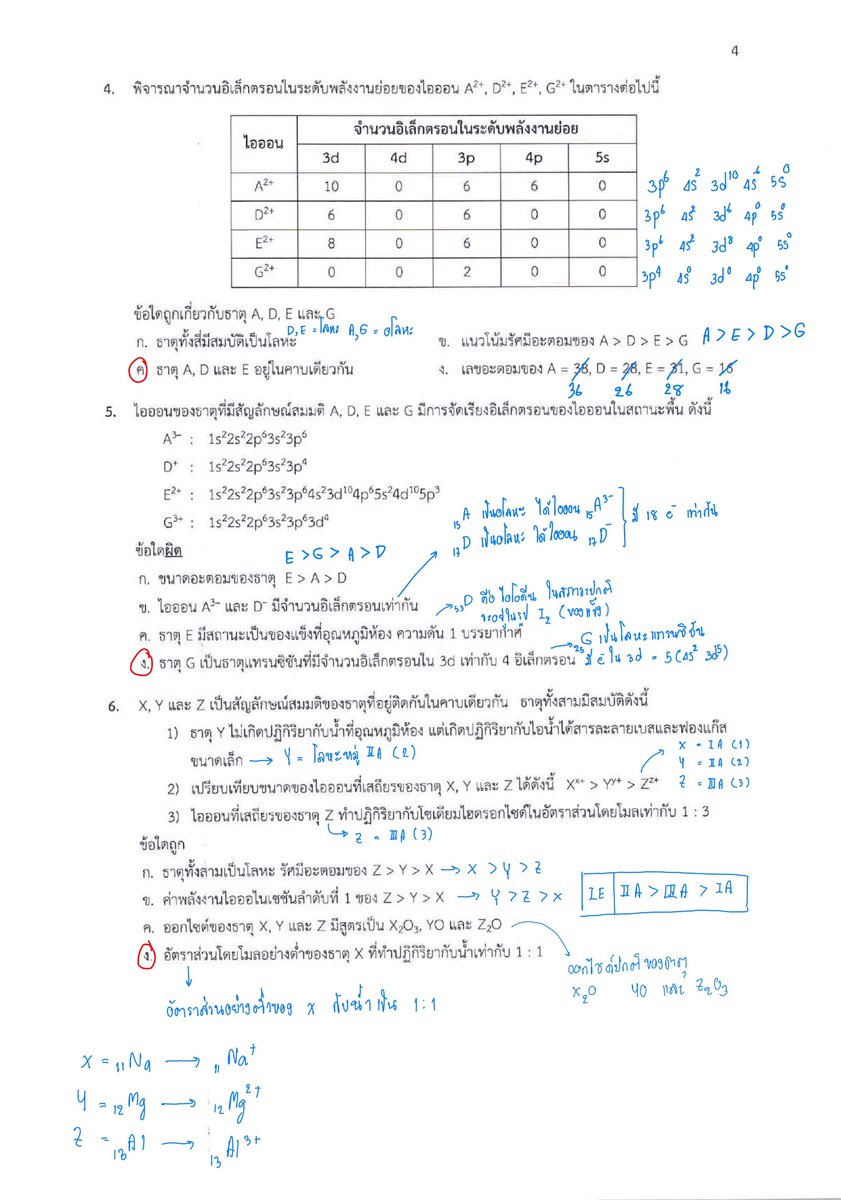 4
4. พิจารณาจำนวนอิเล็กตรอนในระดับพลังงานย่อยของไอออน A²⁺, D²⁺, E²⁺, G²⁺ ในตารางต่อไปนี้
ไอออน จำนวนอิเล็กตรอนในระดับพลังงานย่อย
3d 4d 3p 4p 5s
A²⁺ 10 0 6 6 0 3p⁶ 4s² 3d¹⁰ 4s⁶ 5s⁰
D²⁺ 6 0 6 0 0 3p⁶ 4s² 3d⁶ 4p⁰ 5s⁰
E²⁺ 8 0 6 0 0 3p⁶ 4s² 3d⁸ 4p⁰ 5s⁰
G²⁺ 0 0 2 0 0 3p⁴ 4s⁰ 3d⁰ 4p⁰ 5s⁰
ข้อใดถูกเกี่ยวกับธาตุ A, D, E และ G
D, E = โลหะ A, G = อโลหะ
ก. ธาตุทั้งสี่มีสมบัติเป็นโลหะ ข. แนวโน้มรัศมีอะตอมของ A > D > E > G A > E > D > G
ค. ธาตุ A, D และ E อยู่ในคาบเดียวกัน ง. เลขอะตอมของ A = 38, D = 28, E = 31, G = 16
36 26 28 16
5. ไอออนของธาตุที่มีสัญลักษณ์สมมติ A, D, E และ G มีการจัดเรียงอิเล็กตรอนของไอออนในสถานะพื้น ดังนี้
A³⁻ : 1s²2s²2p⁶3s²3p⁶
D⁺ : 1s²2s²2p⁶3s²3p⁴
E²⁺ : 1s²2s²2p⁶3s²3p⁶4s²3d¹⁰4p⁶5s²4d¹⁰5p³
G³⁺ : 1s²2s²2p⁶3s²3p⁶3d⁴
₁₅A เป็นอโลหะ ได้ไอออน ₁₅A³⁻
₁₇D เป็นอโลหะ ได้ไอออน ₁₇D⁻
มี 18 e⁻ เท่ากัน
ข้อใดผิด
E > G > A > D
ก. ขนาดอะตอมของธาตุ E > A > D
ข. ไอออน A³⁻ และ D⁻ มีจำนวนอิเล็กตรอนเท่ากัน
₅₃D คือ ไอโอดีน ในสภาวะปกติ
จะอยู่ในรูป I₂ (ของแข็ง)
ค. ธาตุ E มีสถานะเป็นของแข็งที่อุณหภูมิห้อง ความดัน 1 บรรยากาศ
₂₅G เป็นโลหะแทรนซิชัน
ง. ธาตุ G เป็นธาตุแทรนซิชันที่มีจำนวนอิเล็กตรอนใน 3d เท่ากับ 4 อิเล็กตรอน มี e⁻ ใน 3d = 5 (4s² 3d⁵)
6. X, Y และ Z เป็นสัญลักษณ์สมมติของธาตุที่อยู่ติดกันในคาบเดียวกัน ธาตุทั้งสามมีสมบัติดังนี้
1) ธาตุ Y ไม่เกิดปฏิกิริยากับน้ำที่อุณหภูมิห้อง แต่เกิดปฏิกิริยากับไอน้ำได้สารละลายเบสและฟองแก๊ส
ขนาดเล็ก → Y = โลหะหมู่ IIA (2)
X = IA (1)
Y = IIA (2)
Z = IIIA (3)
2) เปรียบเทียบขนาดของไอออนที่เสถียรของธาตุ X, Y และ Z ได้ดังนี้ Xˣ⁺ > Yʸ⁺ > Zᶻ⁺
3) ไอออนที่เสถียรของธาตุ Z ทำปฏิกิริยากับโซเดียมไฮดรอกไซด์ในอัตราส่วนโดยโมลเท่ากับ 1 : 3
Z = IIIA (3)
ข้อใดถูก
ก. ธาตุทั้งสามเป็นโลหะ รัศมีอะตอมของ Z > Y > X → X > Y > Z
ข. ค่าพลังงานไอออไนเซชันลำดับที่ 1 ของ Z > Y > X → Y > Z > X
IE IIA > IIIA > IA
ค. ออกไซด์ของธาตุ X, Y และ Z มีสูตรเป็น X₂O₃, YO และ Z₂O
ง. อัตราส่วนโดยโมลอย่างต่ำของธาตุ X ที่ทำปฏิกิริยากับน้ำเท่ากับ 1 : 1
ออกไซด์ปกติ ของธาตุ
X₂O YO และ Z₂O₃
อัตราส่วนอย่างต่ำของ X กับน้ำ เป็น 1:1
X = ₁₁Na → ₁₁Na⁺
Y = ₁₂Mg → ₁₂Mg²⁺
Z = ₁₃Al → ₁₃Al³⁺